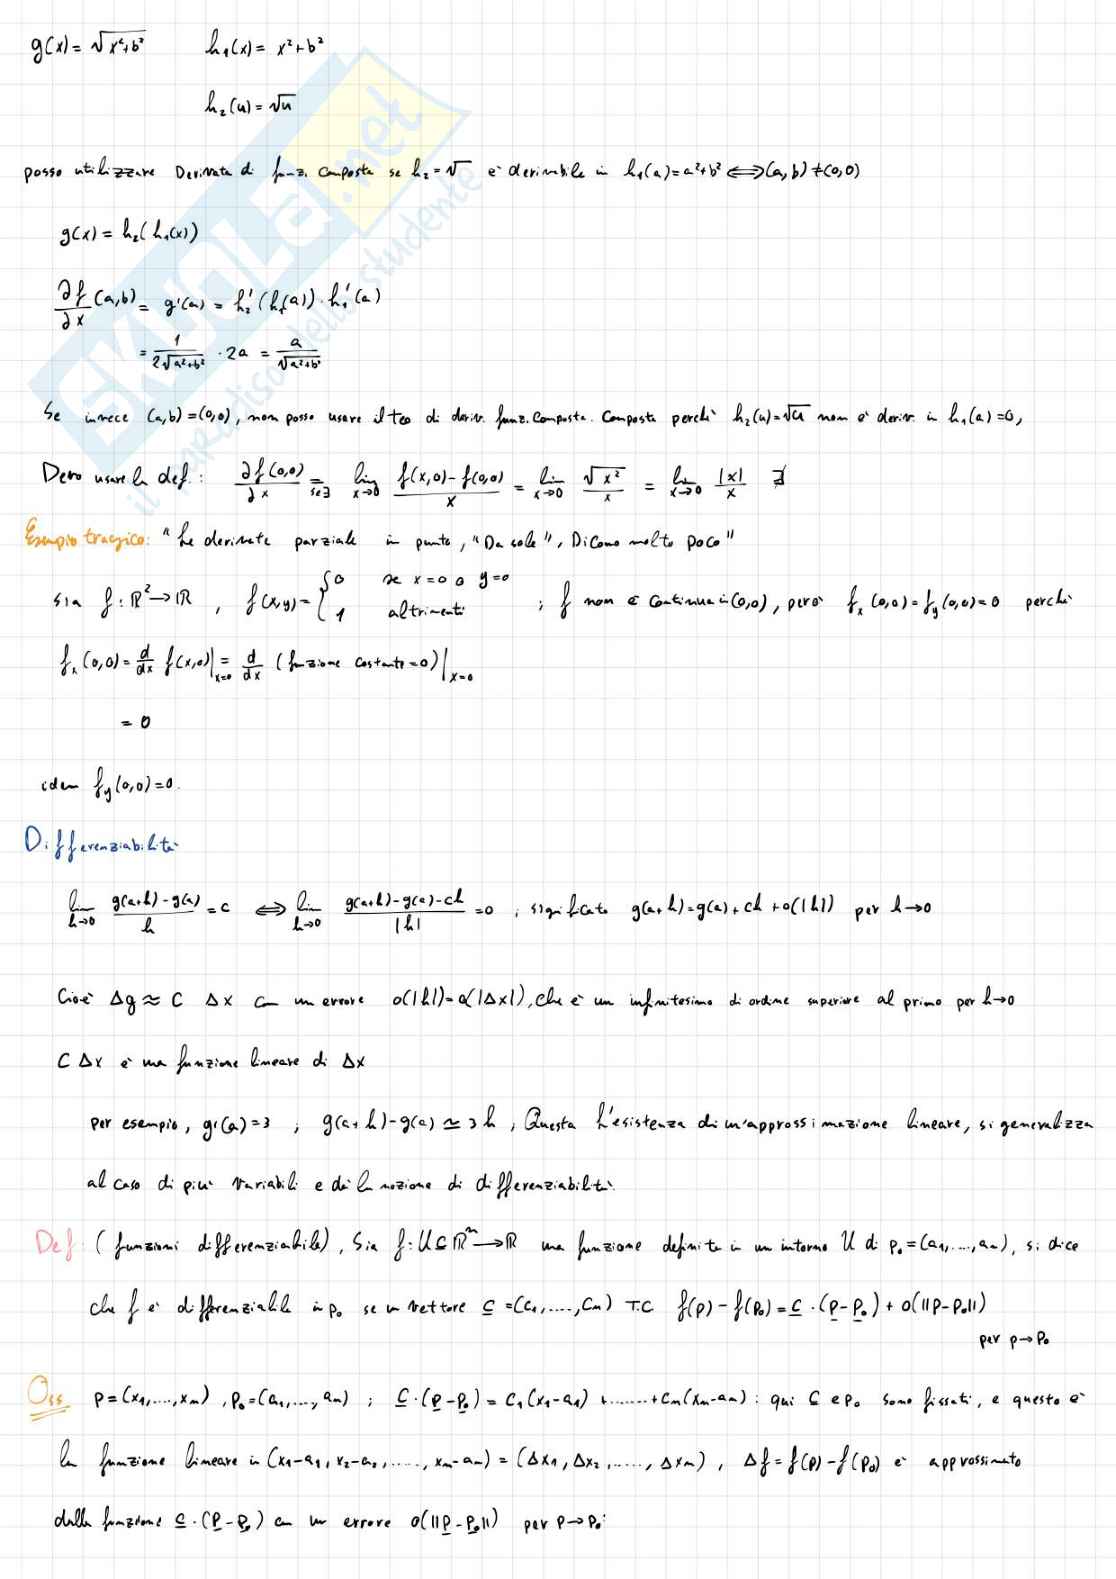 g(x) = √x²+b²   h₁(x) = x²+b²
h₂(u) = √u
posso utilizzare Derivata di funz. Composta se h₂ = √ è derivabile in h₁(a) = a²+b² ⟺ (a,b) ≠ (0,0)
g(x) = h₂(h₁(x))
∂f/∂x (a,b) = g'(a) = h₂'(h₁(a)) · h₁'(a)
= 1/(2√a²+b²) · 2a = a/√a²+b²
Se invece (a,b) = (0,0), non posso usare il teo di deriv. funz. Composta. Composta perché h₂(u) = √u non è deriv. in h₁(a) = 0,
Devo usare la def.: ∂f(0,0)/∂x =(se ∃) lim x→0 (f(x,0) - f(0,0))/x = lim x→0 √x²/x = lim x→0 |x|/x ∄
Esempio tragico: "Le derivate parziale in punto, "Da sole", Dicono molto poco"
Sia f: ℝ² → ℝ, f(x,y) = { 0 se x=0 o y=0
1 altrimenti ; f non è Continua in (0,0), però fₓ(0,0) = f_y(0,0) = 0 perché
fₓ(0,0) = d/dx f(x,0)|x=0 = d/dx (funzione costante = 0)|x=0
= 0
idem f_y(0,0) = 0.
Differenziabilità
lim h→0 (g(a+h) - g(a))/h = c ⟺ lim h→0 (g(a+h) - g(a) - ch)/|h| = 0 ; significato g(a+h) = g(a) + ch + o(|h|) per h→0
Cioè Δg ≈ C Δx con un errore o(|h|) = o(|Δx|), che è un infinitesimo di ordine superiore al primo per h→0
C Δx è una funzione lineare di Δx
per esempio, g'(a) = 3 ; g(a+h) - g(a) ≃ 3h, Questa l'esistenza di un'approssimazione lineare, si generalizza
al caso di più variabili e dà la nozione di differenziabilità.
Def: (funzioni differenziabile), Sia f: U ⊆ ℝⁿ → ℝ una funzione definita in un intorno U di p₀ = (a₁,...., aₙ), si dice
che f è differenziabile in p₀ se un vettore c = (c₁,....., cₙ) T.C f(p) - f(p₀) = c · (p - p₀) + o(||p - p₀||)
per p→p₀
Oss p = (x₁,...., xₙ), p₀ = (a₁,...., aₙ) ; c · (p - p₀) = c₁(x₁-a₁) +.......+ cₙ(xₙ-aₙ) : qui c e p₀ sono fissati, e questo è
la funzione lineare in (x₁-a₁, x₂-a₂, ....., xₙ-aₙ) = (Δx₁, Δx₂, ....., Δxₙ), Δf = f(p) - f(p₀) è approssimato
dalla funzione c · (p - p₀) con un errore o(||p - p₀||) per p→p₀.
SKUOLA.net
il paradiso dello studente